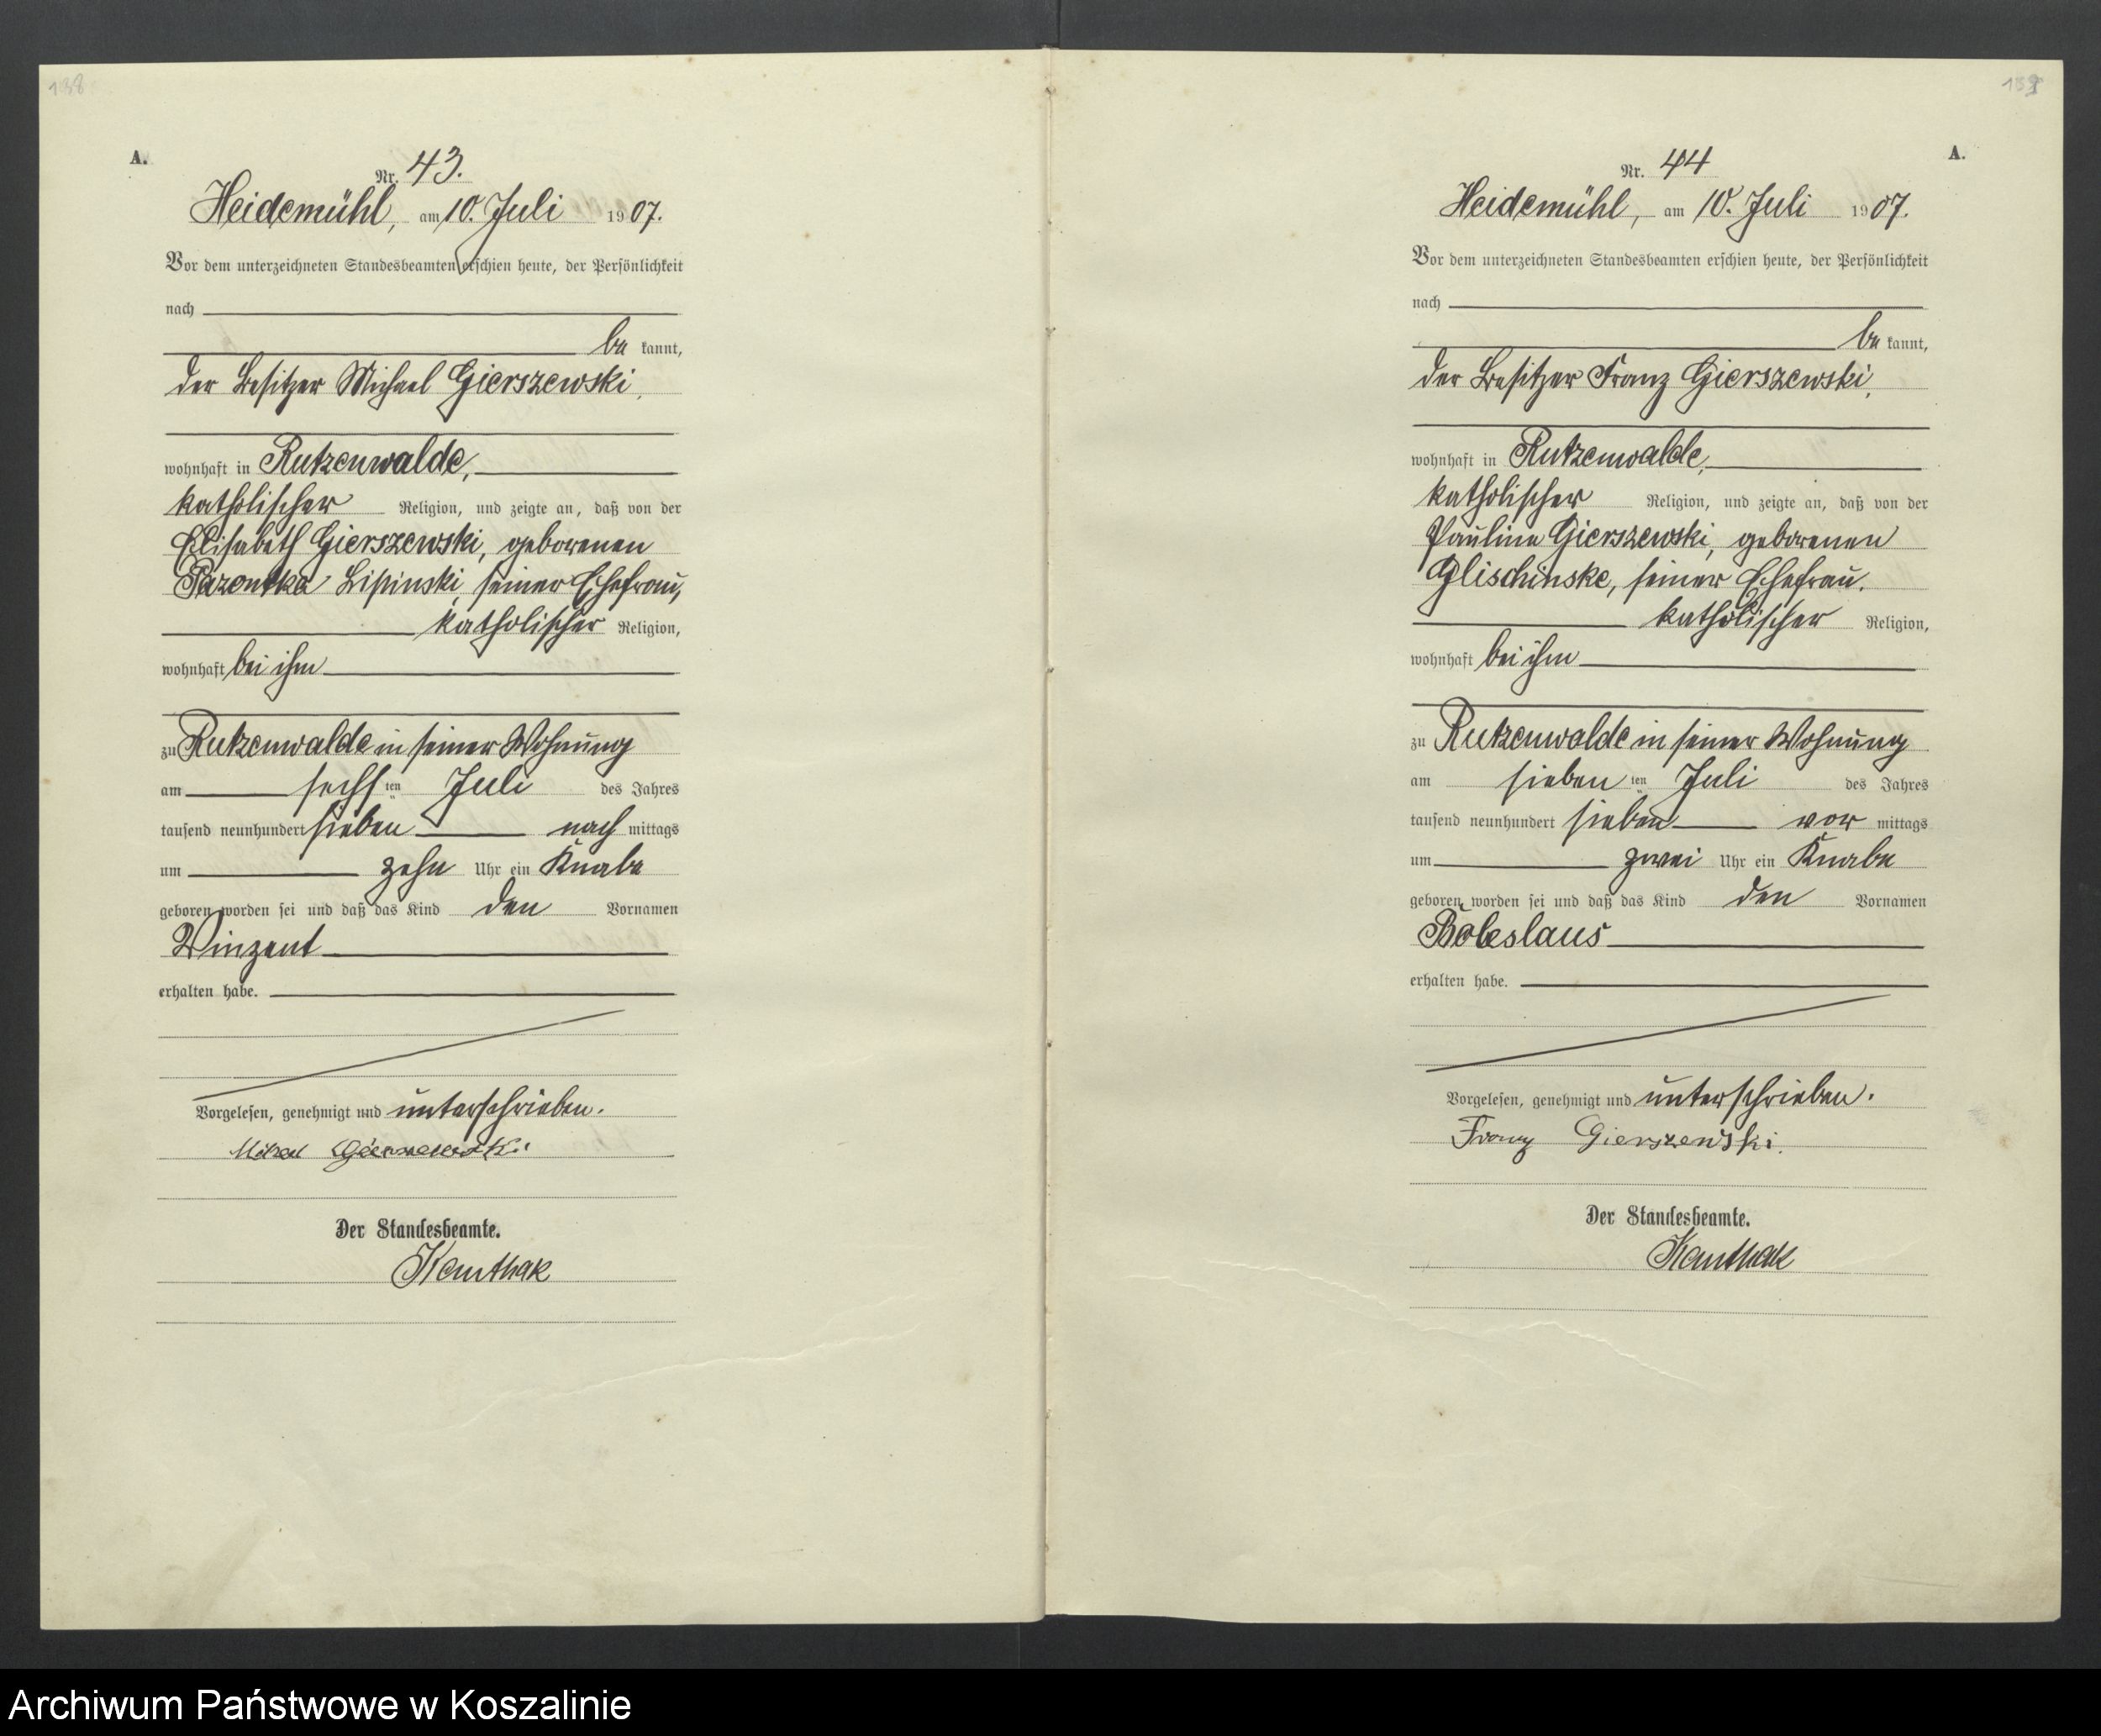 138
A.
Nr. 43.
Heidemühl, am 10. Juli 1907.
Vor dem unterzeichneten Standesbeamten erschien heute, der Persönlichkeit
nach
be kannt,
der Besitzer Michael Gierszewski,
wohnhaft in Rutzenwalde,
katholischer Religion, und zeigte an, daß von der
Elisabeth Gierszewski, geborenen
Pazontka Lipinski, seiner Ehefrau,
katholischer Religion,
wohnhaft bei ihm
zu Rutzenwalde in seiner Wohnung
am sechs ten Juli des Jahres
tausend neunhundert sieben nach mittags
um zehn Uhr ein Knabe
geboren worden sei und daß das Kind den Vornamen
Vinzent
erhalten habe.
Vorgelesen, genehmigt und unterschrieben.
Michael Gierszewski
Der Standesbeamte.
Kauthak
139
A.
Nr. 44
Heidemühl, am 10. Juli 1907.
Vor dem unterzeichneten Standesbeamten erschien heute, der Persönlichkeit
nach
be kannt,
der Besitzer Franz Gierszewski,
wohnhaft in Rutzenwalde,
katholischer Religion, und zeigte an, daß von der
Pauline Gierszewski, geborenen
Glischinske, seiner Ehefrau.
katholischer Religion,
wohnhaft bei ihm
zu Rutzenwalde in seiner Wohnung
am sieben ten Juli des Jahres
tausend neunhundert sieben vor mittags
um zwei Uhr ein Knabe
geboren worden sei und daß das Kind den Vornamen
Boleslaus
erhalten habe.
Vorgelesen, genehmigt und unterschrieben.
Franz Gierszewski.
Der Standesbeamte.
Kauthak
Archiwum Państwowe w Koszalinie